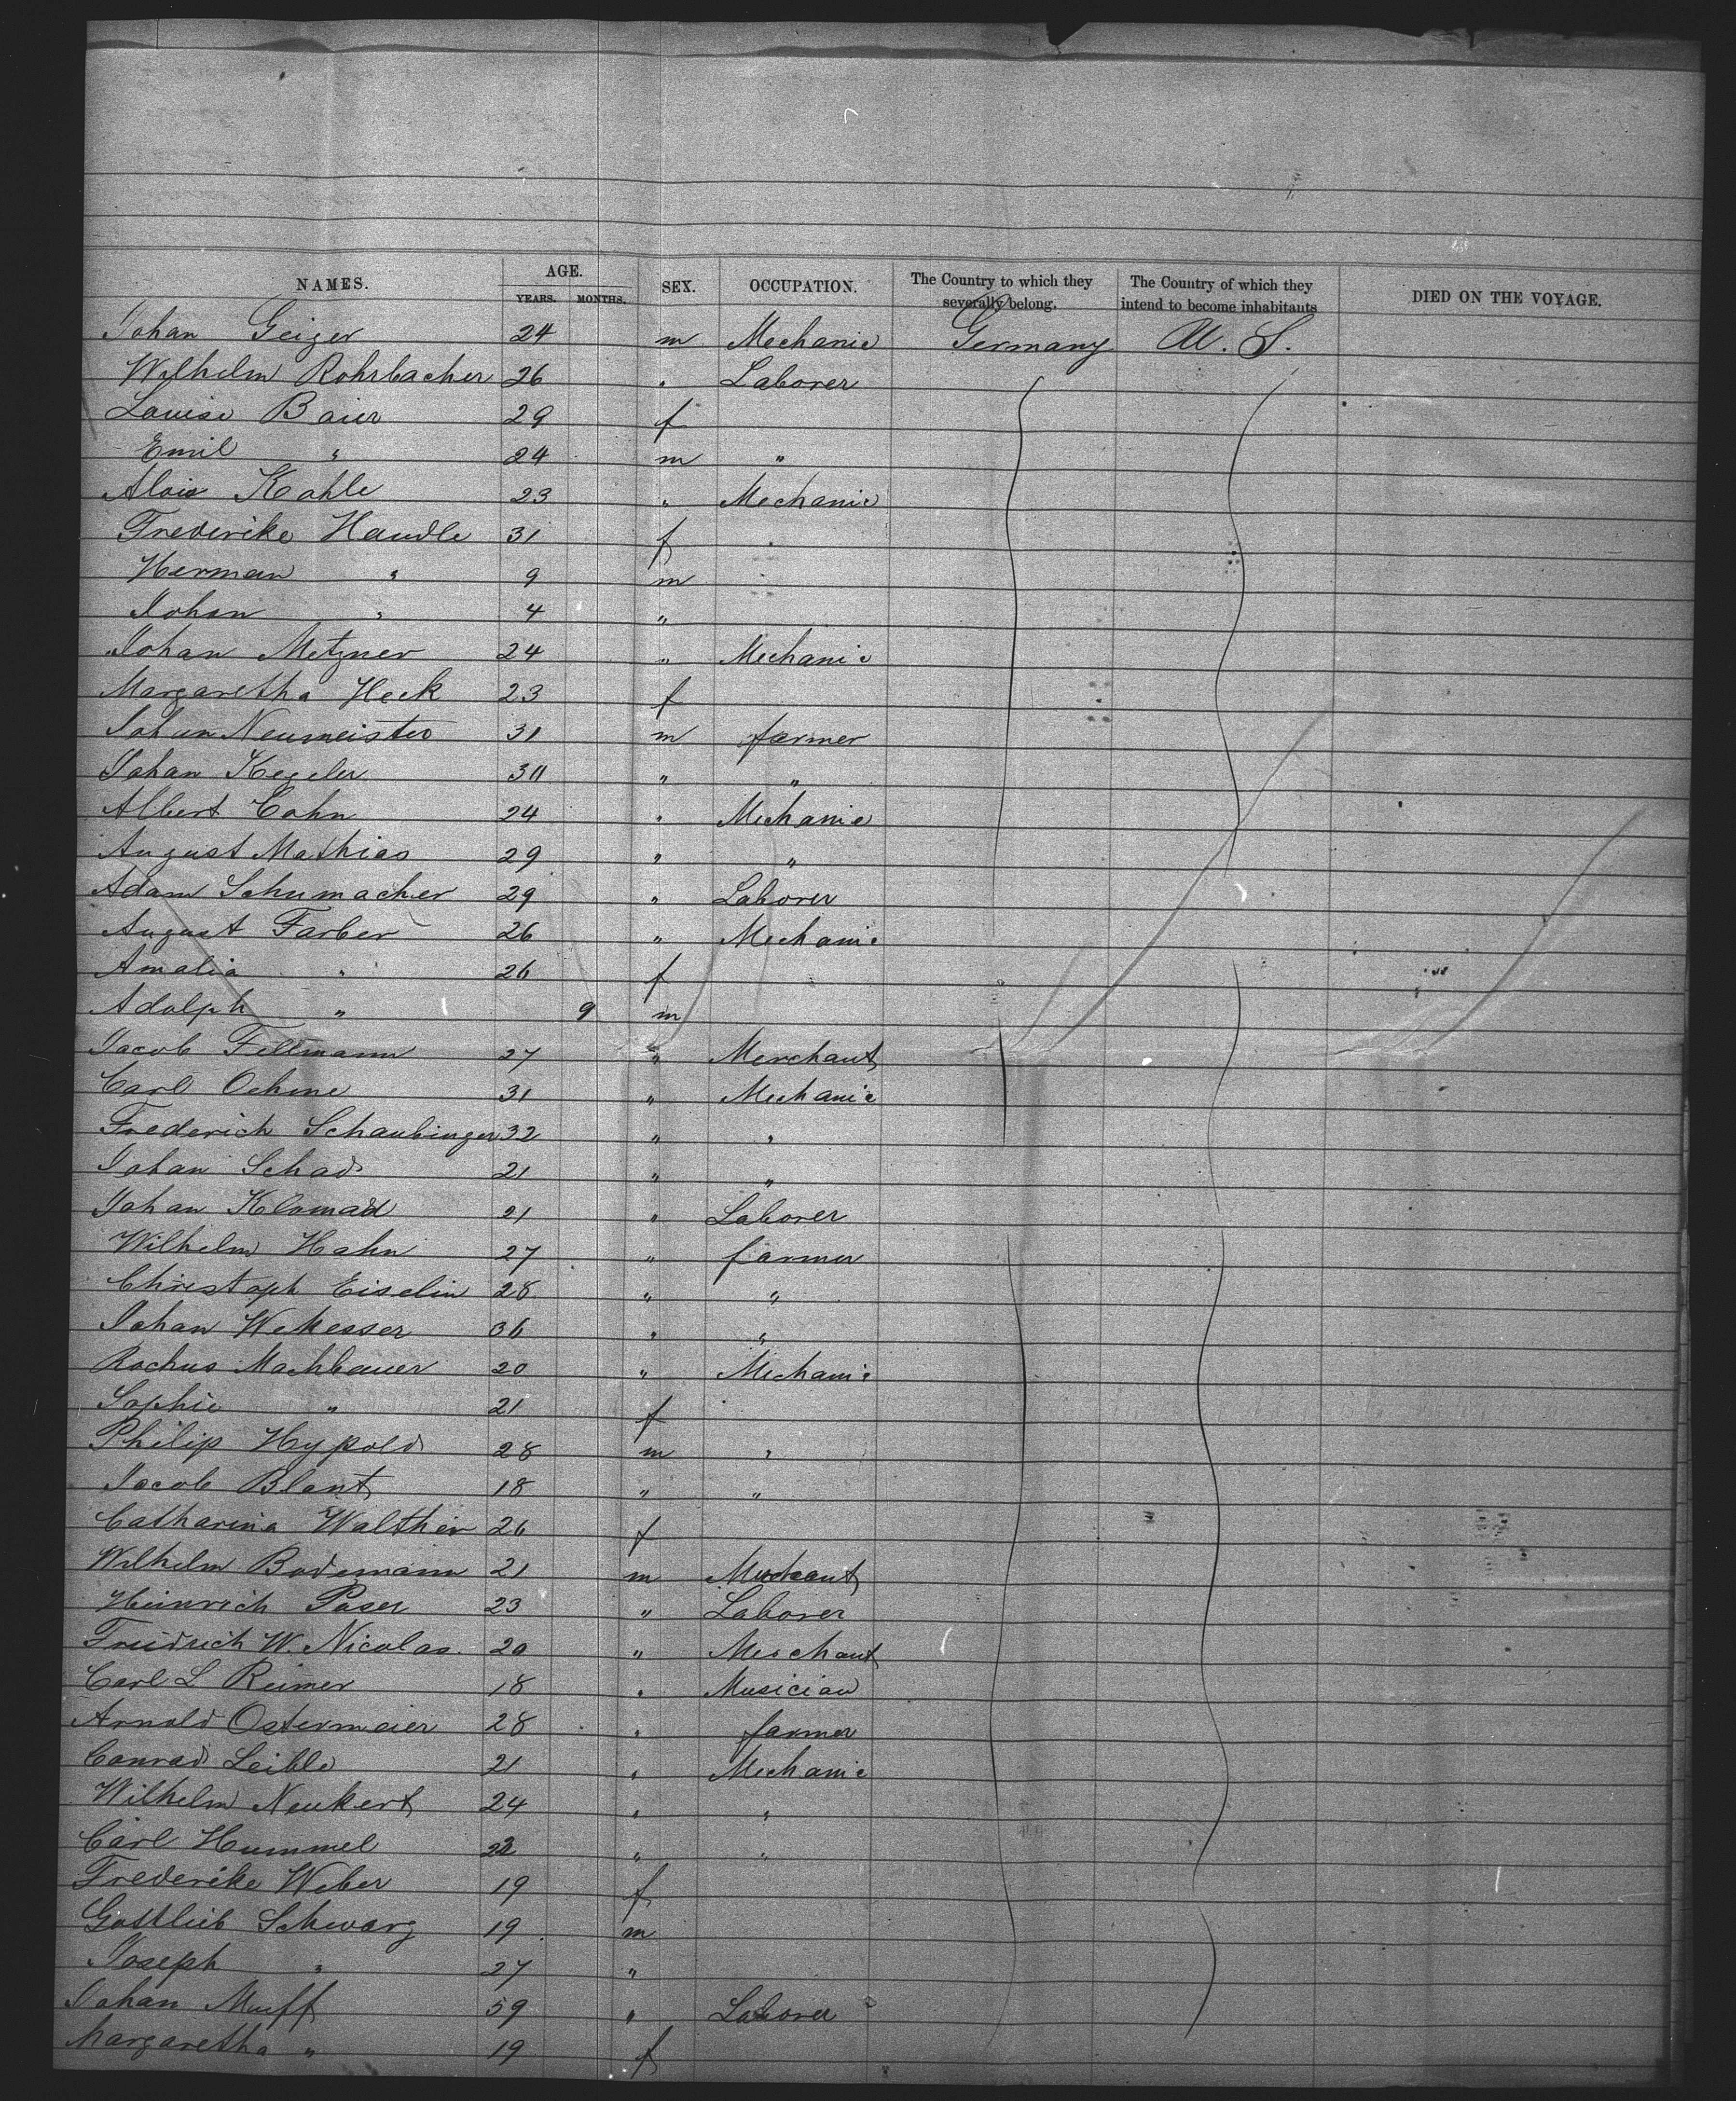 NAMES. AGE. SEX. OCCUPATION. The Country to which they severally belong. The Country of which they intend to become inhabitants DIED ON THE VOYAGE.
YEARS. MONTHS.
Johan Geiger 24 m Mechanic Germany U. S.
Wilhelm Rohrbacher 26 " Laborer
Louise Baier 29 f
Emil " 24 m "
Alois Kohle 23 " Mechanic
Frederike Haudle 31 f
Herman " 9 m
Johan " 4 "
Johan Metzner 24 " Mechanic
Margaretha Heck 23 f
Johan Neumeister 31 m farmer
Johan Kegeler 30 " "
Albert Cohn 24 " Mechanic
August Mathias 29 " "
Adam Schumacher 29 " Laborer
August Farber 26 " Mechanic
Amalia " 26 f
Adolph " 9 m
Jacob Fellmann 27 " Merchant
Carl Oehme 31 " Mechanic
Frederich Schaubinger 32 " "
Johan Schad 21 " "
Johan Klomad 21 " Laborer
Wilhelm Hahn 27 " farmer
Christoph Eiselin 28 " "
Johan 36 " "
Rochus Machbauer 20 " Mechanic
Sophie " 21 f
Philip Hypold 28 m "
Jacob Blant 18 " "
Catharina Walther 26 f
Wilhelm Bodemann 21 m Merchant
Heinrich Paser 23 " Laborer
Friedrich W. Nicolas. 20 " Merchant
Carl L Reimer 18 " Musician
Arnold Ostermeier 28 " farmer
Conrad Leible 21 " Mechanic
Wilhelm Neukert 24 " "
Carl Hummel 22 " "
Frederike Weber 19 f
Gottlieb Schwarz 19 m
Joseph " 27 "
Johan Muff 59 " Laborer
Margaretha " 19 f